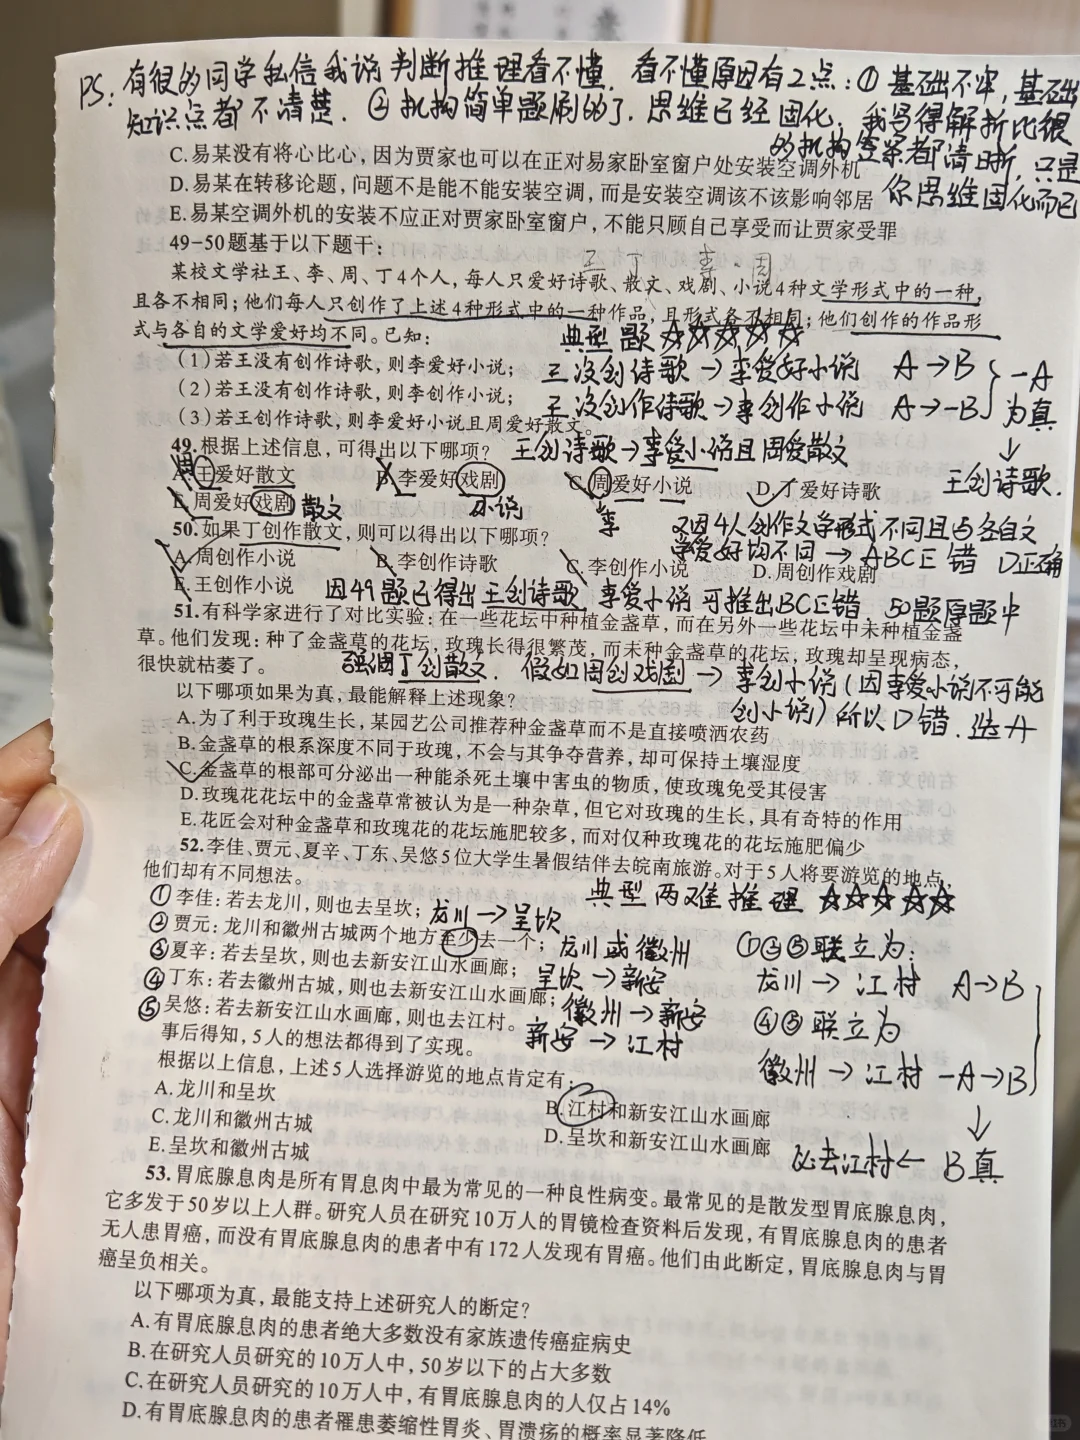 PS: 有很的同学私信我说 判断推理看不懂. 看不懂原因有2点: ① 基础不牢, 基础
知识点都不清楚. ② 机构简单题刷的了. 思维已经固化. 我写得解析比很
的机构答案都清晰, 只是
你思维固化而已
C.易某没有将心比心,因为贾家也可以在正对易家卧室窗户处安装空调外机
D.易某在转移论题,问题不是能不能安装空调,而是安装空调该不该影响邻居
E.易某空调外机的安装不应正对贾家卧室窗户,不能只顾自己享受而让贾家受罪
49-50题基于以下题干:
王 丁 李 周
某校文学社王、李、周、丁4个人,每人只爱好诗歌、散文、戏剧、小说4种文学形式中的一种,
且各不相同;他们每人只创作了上述4种形式中的一种作品,且形式各不相同;他们创作的作品形
式与各自的文学爱好均不同。已知:
典型题 ☆☆☆☆☆
(1)若王没有创作诗歌,则李爱好小说;
王没创诗歌→李爱好小说 A→B
(2)若王没有创作诗歌,则李创作小说;
王没创作诗歌→李创作小说 A→-B
-A
为真
(3)若王创作诗歌,则李爱好小说且周爱好散文。
王创诗歌→李爱小说且周爱散文
↓
王创诗歌.
49.根据上述信息,可得出以下哪项?
周
A.王爱好散文 B.李爱好戏剧 C.周爱好小说 D.丁爱好诗歌
E.周爱好戏剧 散文 小说 李
又因4人创作文学形式不同且与各自文
学爱好均不同→ABCE错 D正确
50.如果丁创作散文,则可以得出以下哪项?
A.周创作小说 B.李创作诗歌 C.李创作小说 D.周创作戏剧
E.王创作小说
因49题已得出王创诗歌 李爱小说 可推出BCE错 50题原题中
51.有科学家进行了对比实验:在一些花坛中种植金盏草,而在另外一些花坛中未种植金盏
草。他们发现:种了金盏草的花坛,玫瑰长得很繁茂,而未种金盏草的花坛,玫瑰却呈现病态,
很快就枯萎了。
强调丁创散文. 假如周创戏剧→李创小说(因李爱小说不可能
创小说)所以D错. 选A
以下哪项如果为真,最能解释上述现象?
A.为了利于玫瑰生长,某园艺公司推荐种金盏草而不是直接喷洒农药
B.金盏草的根系深度不同于玫瑰,不会与其争夺营养,却可保持土壤湿度
C.金盏草的根部可分泌出一种能杀死土壤中害虫的物质,使玫瑰免受其侵害
D.玫瑰花花坛中的金盏草常被认为是一种杂草,但它对玫瑰的生长,具有奇特的作用
E.花匠会对种金盏草和玫瑰花的花坛施肥较多,而对仅种玫瑰花的花坛施肥偏少
52.李佳、贾元、夏辛、丁东、吴悠5位大学生暑假结伴去皖南旅游。对于5人将要游览的地点,
他们却有不同想法。
典型两难推理 ☆☆☆☆☆
① 李佳:若去龙川,则也去呈坎;
龙川→呈坎
② 贾元:龙川和徽州古城两个地方至少去一个;
龙川或徽州
①③⑤联立为:
③ 夏辛:若去呈坎,则也去新安江山水画廊;
呈坎→新安
龙川→江村 A→B
④ 丁东:若去徽州古城,则也去新安江山水画廊;
徽州→新安
④⑤联立为
⑤ 吴悠:若去新安江山水画廊,则也去江村。
新安→江村
徽州→江村 -A→B
事后得知,5人的想法都得到了实现。
根据以上信息,上述5人选择游览的地点肯定有:
↓
A.龙川和呈坎 B.江村和新安江山水画廊
C.龙川和徽州古城 D.呈坎和新安江山水画廊
E.呈坎和徽州古城
必去江村← B真
53.胃底腺息肉是所有胃息肉中最为常见的一种良性病变。最常见的是散发型胃底腺息肉,
它多发于50岁以上人群。研究人员在研究10万人的胃镜检查资料后发现,有胃底腺息肉的患者
无人患胃癌,而没有胃底腺息肉的患者中有172人发现有胃癌。他们由此断定,胃底腺息肉与胃
癌呈负相关。
以下哪项为真,最能支持上述研究人的断定?
A.有胃底腺息肉的患者绝大多数没有家族遗传癌症病史
B.在研究人员研究的10万人中,50岁以下的占大多数
C.在研究人员研究的10万人中,有胃底腺息肉的人仅占14%
D.有胃底腺息肉的患者罹患萎缩性胃炎、胃溃疡的概率显著降低